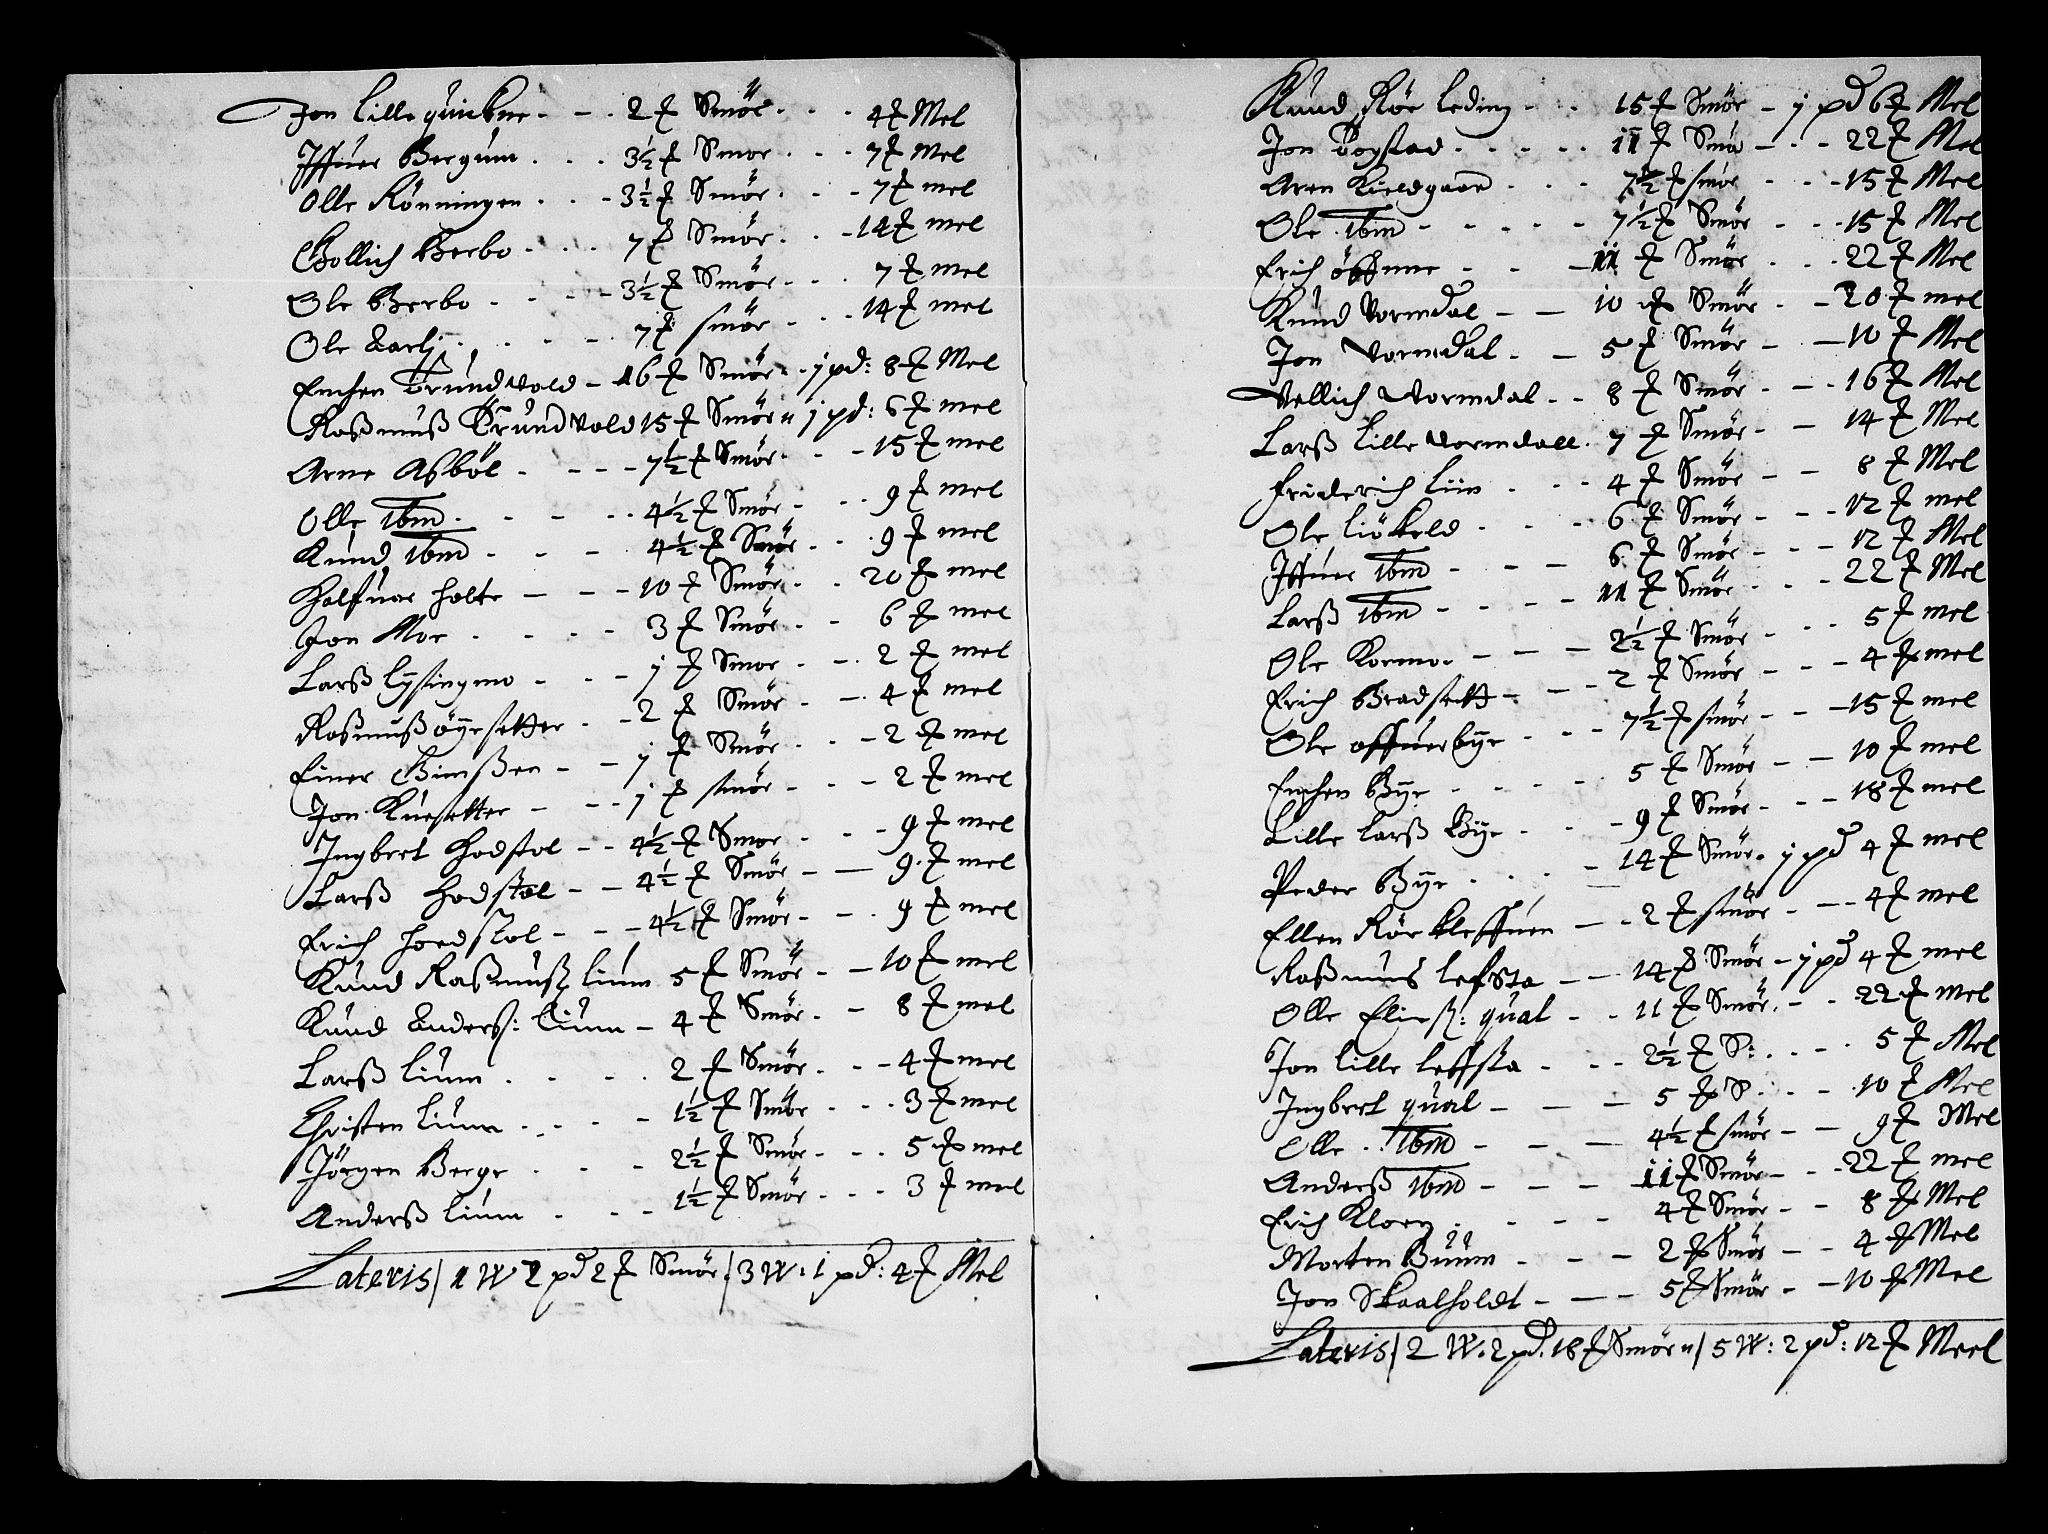 Jon Lille quickne - - - 2 ℔ Smör - - - 4 ℔ Mel
Iffuer Bergum . . . 3½ ℔ Smor . . . 7 ℔ Mel
Olle Rönningen . . . 3½ ℔ Smör . . . 7 ℔ mel
Gollich Berbo . . . 7 ℔ Smör . . . 14 ℔ mel
Ole Berbo . . . . 3½ ℔ Smör . . . 7 ℔ mel
Ole Aarlj . . . . 7 ℔ smör . . . 14 ℔ mel
Enchen Grundvold - 16 ℔ Smör . j pd: 8 ℔ Mel
Raßmuß Grundvold 15 ℔ Smör " j pd: 6 ℔ mel
Arne Asböl . - - - 7½ ℔ Smör . . . 15 ℔ mel
Olle Ibm . . . . 4½ ℔ Smör . . . 9 ℔ mel
Knud Ibm . . . 4½ ℔ Smör . . . 9 ℔ mel
Halfuar holte - - - 10 ℔ Smör . . 20 ℔ mel
Jon Moe . . . . 3 ℔ Smör . . 6 ℔ mel
Larß Lysingmo - - - j ℔ Smor . . . 2 ℔ mel
Raßmuß öyesetter . - 2 ℔ Smör . - . 4 ℔ mel
Einer Gimßen - - j ℔ Smör . . - 2 ℔ mel
Jon Kuesetter - - - j ℔ smör - - - 2 ℔ mel
Ingbret Hodstol - - 4½ ℔ Smor . . . 9 ℔ mel
Larß Hodstel - - 4½ ℔ Smör - — 9 ℔ mel
Erich Hoedstol - - - 4½ ℔ Smör - - . 9 ℔ mel
Knud Raßmuß: Lium 5 ℔ Smör - - 10 ℔ mel
Knud Anderß: Lium - 4 ℔ Smör . - 8 ℔ mel
Larß Lium . . . . 2 ℔ Smör . . - 4 ℔ mel
Christen Lium . . . - 1½ ℔ Smör . . . 3 ℔ mel
Jörgen Berge . . . 2½ ℔ Smör . . . 5 ℔ mel
Anderß Lium . . - 1½ ℔ Smör . . . 3 ℔ mel
Lateris / 1 W 2 pd 2 ℔ Smör / 3 W: 1 pd: 4 ℔ Mel
Knud Rör Leding - - 15 ℔ Smör - j pd 6 ℔ Mel
Jon Bogstad . . . . . 11 ℔ Smör - - - 22 ℔ Mel
Aren Kieldgaard . . . 7½ ℔ smör . . . 15 ℔ Mel
Ole Ibm - - - - - 7½ ℔ Smör . . . 15 ℔ Mel
Erich öffunne . . - 11 ℔ Smör . . . 22 ℔ Mel
Knud Vormdal - — 10 ℔ Smör . - 20 ℔ mel
Jon Vormdal . - 5 ℔ Smör - - 10 ℔ Mel
Vellich Vormdal - - 8 ℔ Smör . - . 16 ℔ Mel
Larß Lille Vormdall . 7 ℔ Smör - - 14 ℔ Mel
Friderich Liin . . . . 4 ℔ Smör - - 8 ℔ Mel
Ole Liökeld . . . . 6 ℔ Smör . - - 12 ℔ mel
Iffuer Ibm - - - - 6 ℔ Smör - - - 12 ℔ Mel
Larß Ibm . - - - 11 ℔ Smör . . . 22 ℔ Mel
Ole Kormo . - - - 2½ ℔ Smör . . . 5 ℔ mel
Erich Bradsett - — - 2 ℔ Smör - - - 4 ℔ mel
Ole offuerbye . . . 7½ ℔ smör - - - 15 ℔ mel
Enchen Bye . . . . 5 ℔ Smör - - 10 ℔ mel
Lille Larß Bye . . . 9 ℔ Smör . - - 18 ℔ mel
Peder Bye . . . - 14 ℔ Smör . j pd 4 ℔ mel
Ellen Rörkleffuen - - 2 ℔ smör - - - 4 ℔ mel
Raßmus Lefsta - - 14 ℔ Smör - j pd 4 ℔ mel
Olle Elinß: qual - - 11 ℔ Smör . - . 22 ℔ mel
Jon Lille Leffsta . - - 2½ ℔ S: . . - . 5 ℔ Mel
Ingbret qual - — — 5 ℔ S . . - 10 ℔ Mel
Olle . Ibm - - - 4½ ℔ smör - - 9 ℔ Mel
Anderß Ibm - - - 11 ℔ Smör - - - 22 ℔ mel
Erich Kloey . . . . 4 ℔ Smör - - 8 ℔ Mel
Morten Buum - - - 2 ℔ Smör - - 4 ℔ Mel
Jon Skaalholdt - — - 5 ℔ Smör - - 10 ℔ Mel
Lateris / 2 W. 2 pd. 18 ℔ Smör " / 5 W: 2 pd: 12 ℔ Meel